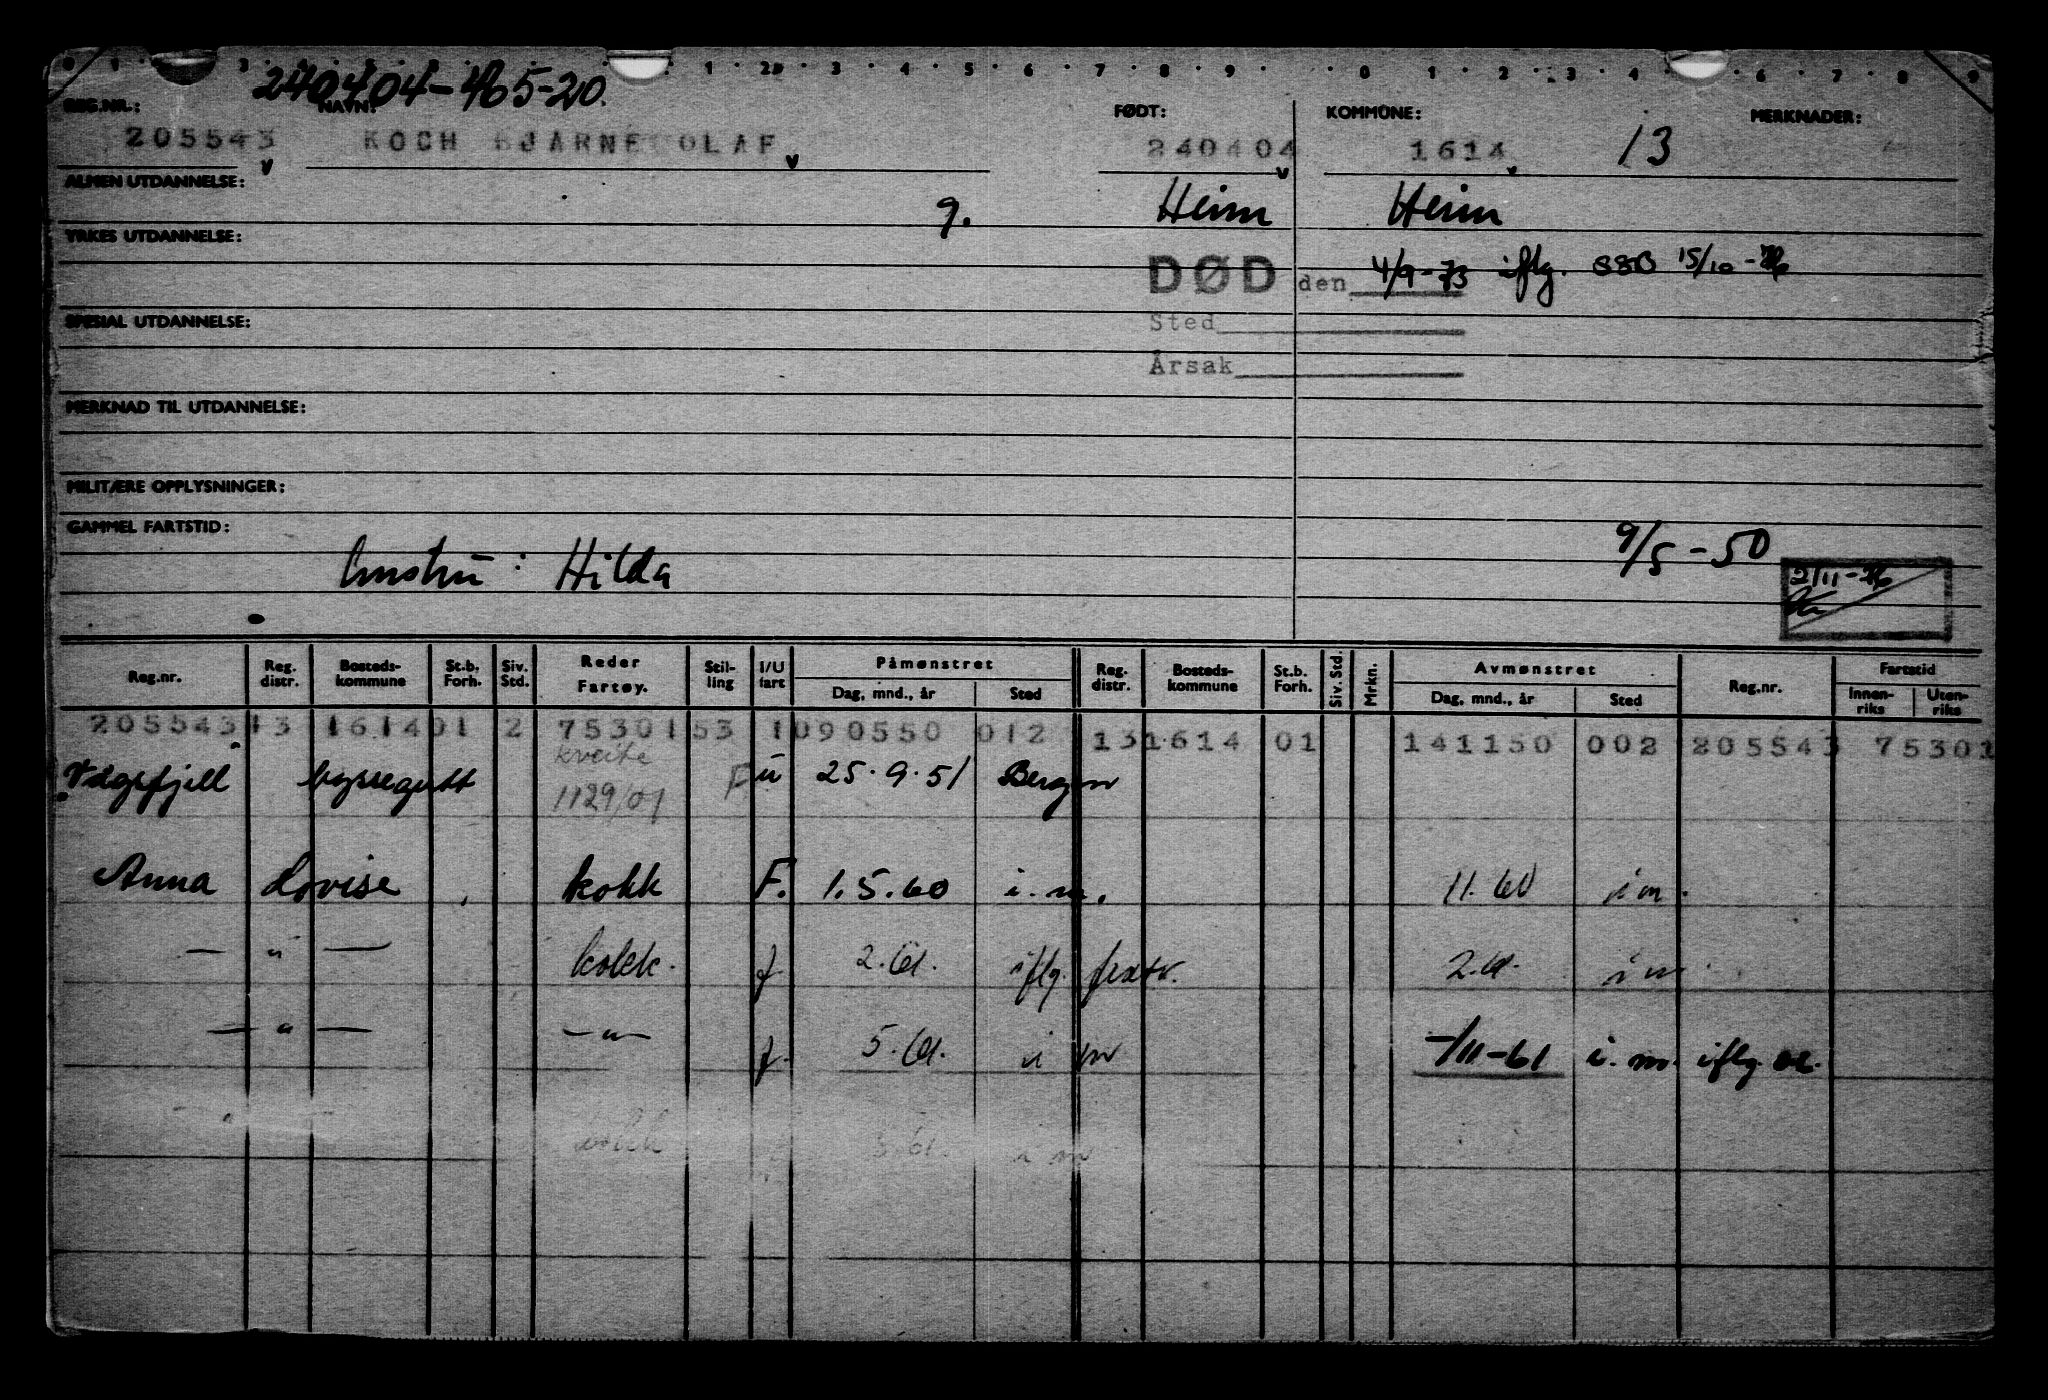 240404-465-20.
REG.NR.: NAVN: FØDT: KOMMUNE: MERKNADER:
205543 KOCH BJARNE OLAF 240404 1614 13
ALMEN UTDANNELSE:
g. Heim Heim
YRKES UTDANNELSE:
DØD den 4/9-73 iflg. SSB 15/10-76
SPESIAL UTDANNELSE:
Sted
Årsak
MERKNAD TIL UTDANNELSE:
MILITÆRE OPPLYSNINGER:
GAMMEL FARTSTID:
Hilda 9/5-50
2/11-76
Reg.nr. Reg. distr. Bosteds-kommune St.b. Forh. Siv. Std. Reder Fartøy. Stil-ling I/U fart Påmønstret Dag, mnd., år Sted Reg. distr. Bosteds-kommune St.b. Forh. Siv. Std. Mrkn. Avmønstret Dag, mnd., år Sted Reg.nr. Fartstid Innen-riks Uten-riks
205543 13 1614 01 2 75301 53 1 090550 012 13 1614 01 141150 002 205543 75301
Vågsfjell byssegutt kveite 1129/01 F u 25.9.51 Bergen
Anna Lovise kokk F. 1.5.60 i.m. 11.60 i m.
— " — kokk. f 2.61. iflg. fextr. 2.61. i m.
— " — — " — f. 5.61. i m -/11-61 i.m. iflg. oc.
" kokk 5.61. i m